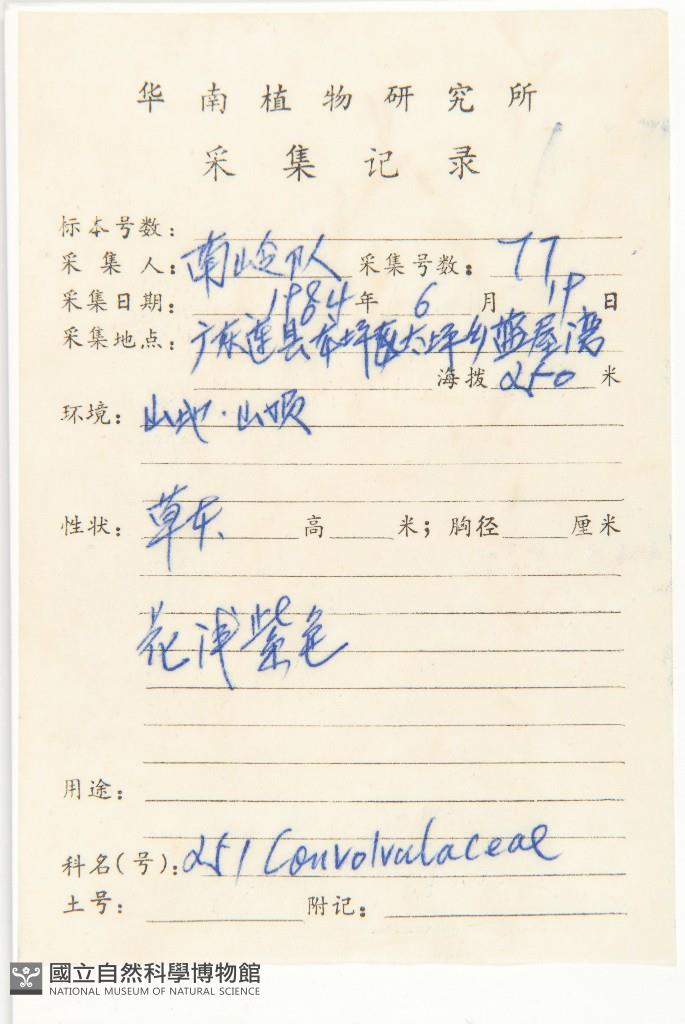 华南植物研究所
采集记录
标本号数：
采集人：南岭队 采集号数：77
采集日期：1984年6月19日
采集地点：广东连县东坪区大坪乡蓝屋湾
海拨250米
环境：山地·山顶
性状：草本 高 米；胸径 厘米
花浅紫色
用途：
科名(号)：251 Convolvulaceae
土号： 附记：
國立自然科學博物館
NATIONAL MUSEUM OF NATURAL SCIENCE